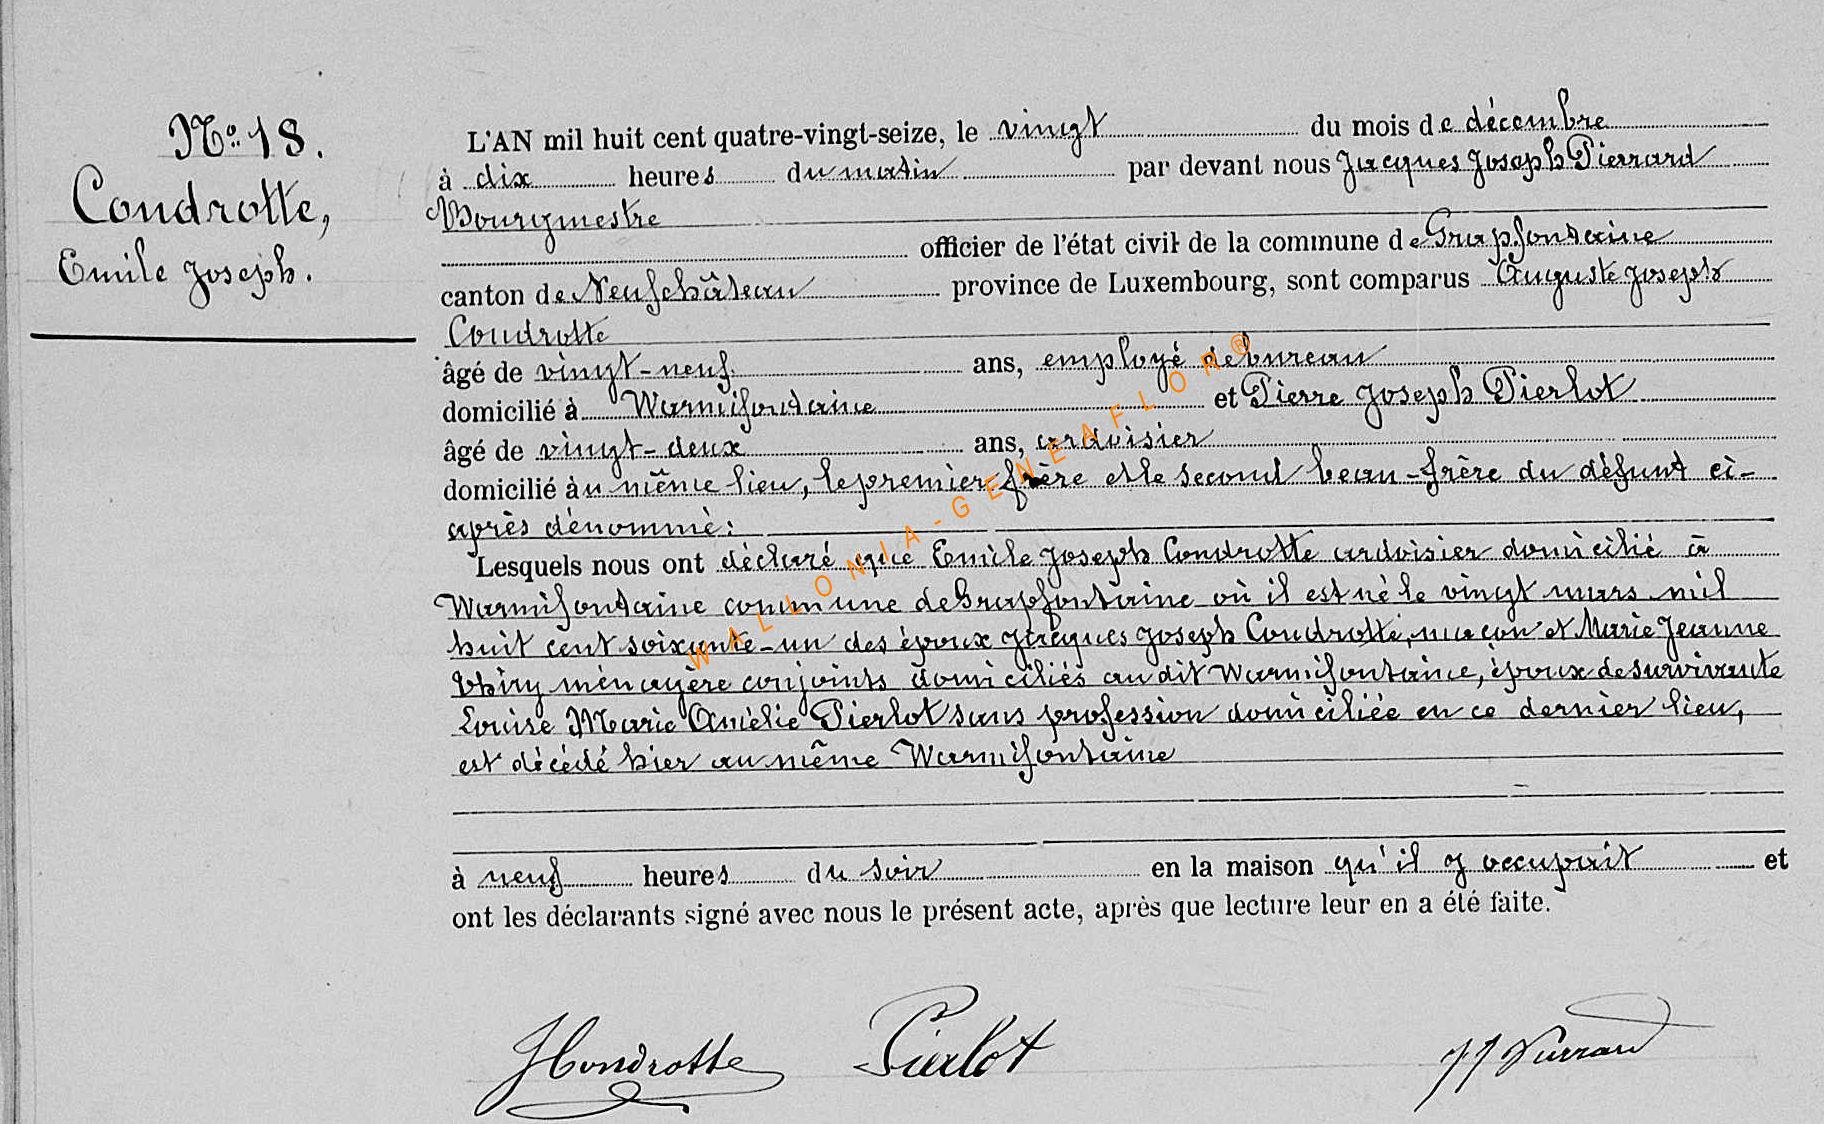 N° 18.
Condrotte,
Emile Joseph.
L'AN mil huit cent quatre-vingt-seize, le vingt du mois de décembre
à dix heures du matin par devant nous Jacques Joseph Pierrard
Bourgmestre
officier de l'état civil de la commune de Grapfontaine
canton de Neufchâteau province de Luxembourg, sont comparus Auguste Joseph
Condrotte
âgé de vingt-neuf ans, employé de bureau
domicilié à Warmifontaine et Pierre Joseph Pierlot
âgé de vingt-deux ans, ardoisier
domicilié au même lieu, le premier frère et le second beau-frère du défunt ci-
après dénommé:
Lesquels nous ont déclaré que Emile Joseph Condrotte ardoisier domicilié à
Warmifontaine commune de Grapfontaine où il est né le vingt mars mil
huit cent soixante-un des époux Jacques Joseph Condrotte, maçon et Marie Jeanne
Thiry ménagère conjoints domiciliés au dit Warmifontaine, époux de survivante
Louise Marie Amélie Pierlot sans profession domiciliée en ce dernier lieu,
est décédé hier au même Warmifontaine
à neuf heures du soir en la maison qu'il y occupait et
ont les déclarants signé avec nous le présent acte, après que lecture leur en a été faite.
Condrotte Pierlot JJ Pierrard
WALLONIA-GENEAFLOR®